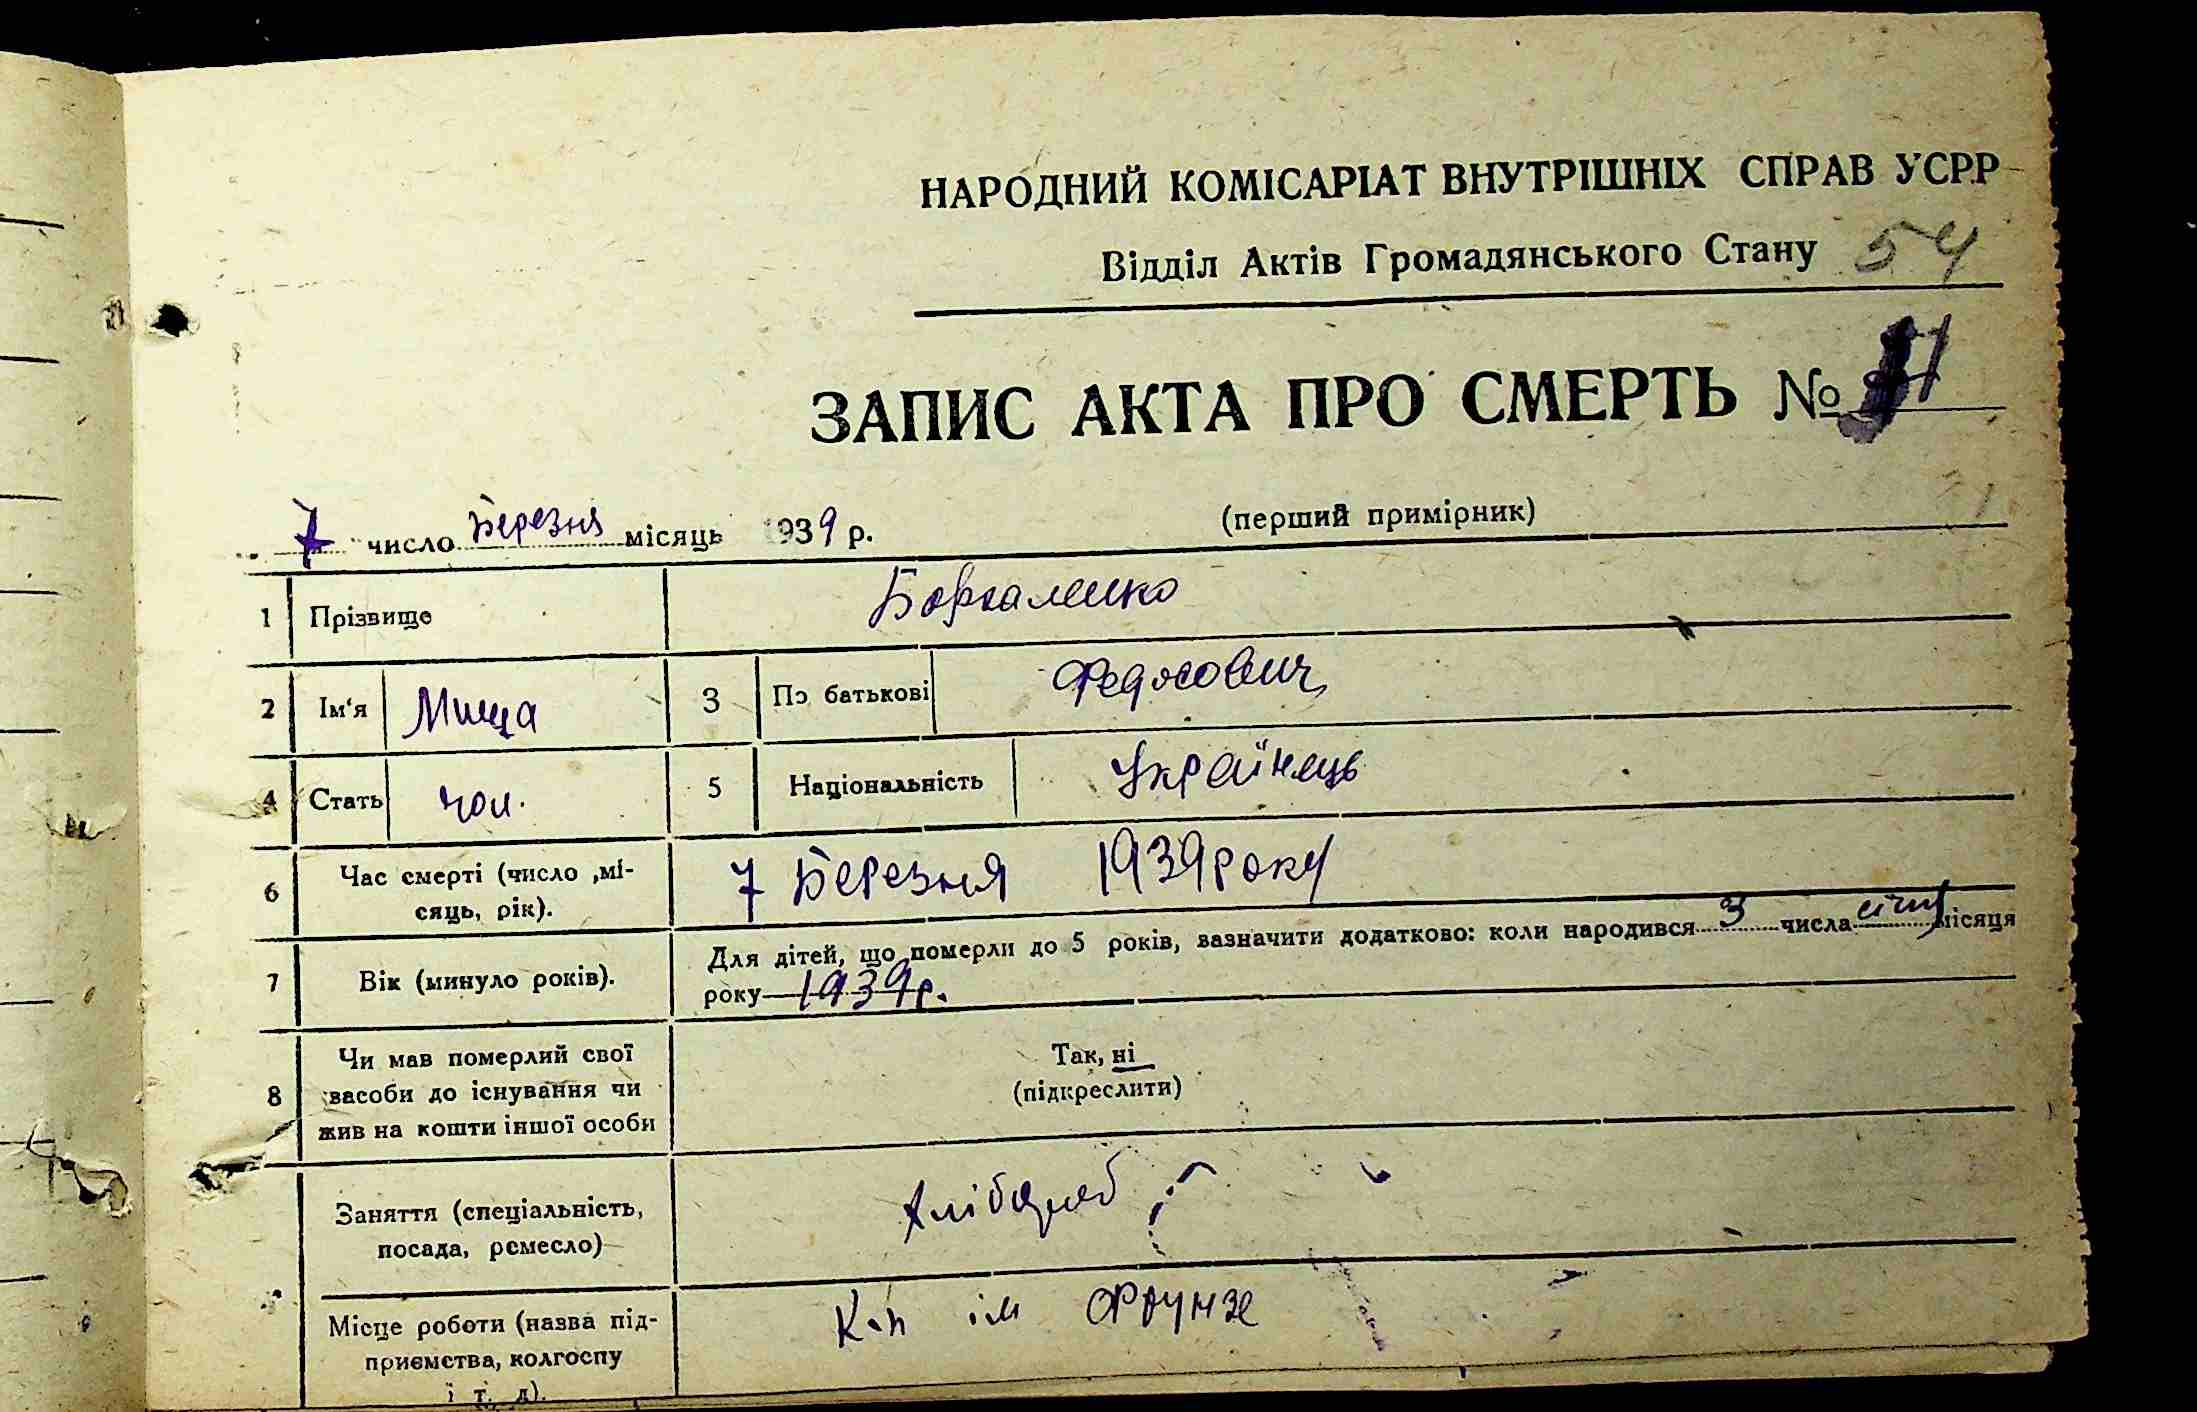 НАРОДНИЙ КОМІСАРІАТ ВНУТРІШНІХ СПРАВ УСРР
Відділ Актів Громадянського Стану 54
ЗАПИС АКТА ПРО СМЕРТЬ №
7 число Березня місяць 1939 р. (перший примірник)
1 Прізвище
2 Ім'я Миша 3 По батькові Федосович
4 Стать чол. 5 Національність Українець
6 Час смерті (число ,мі-
сяць, рік). 7 Березня 1939 року
7 Вік (минуло років). Для дітей, що померли до 5 років, зазначити додатково: коли народився 3 числа січня місяця
року 1939 р.
8 Чи мав померлий свої
засоби до існування чи
жив на кошти іншої особи
Так, ні
(підкреслити)
Заняття (спеціальність,
посада, ремесло) хлібороб
Місце роботи (назва під-
приємства, колгоспу
і т. д). К-п ім Фрунзе